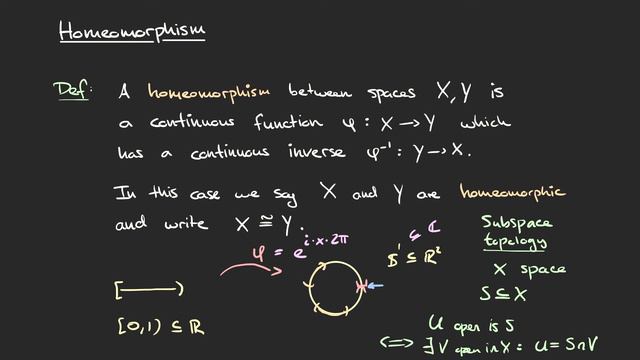 Homeomorphism
Def: A homeomorphism between spaces X, Y is
a continuous function φ : X → Y which
has a continuous inverse φ⁻¹ : Y → X.
In this case we say X and Y are homeomorphic
and write X ≅ Y.
φ = e^{i·x·2π}
⊆ ℂ
𝕊¹ ⊆ ℝ²
[0,1) ⊆ ℝ
Subspace
topology
X space
S ⊆ X
U open is S
⟺ ∃ V open in X : U = S∩V